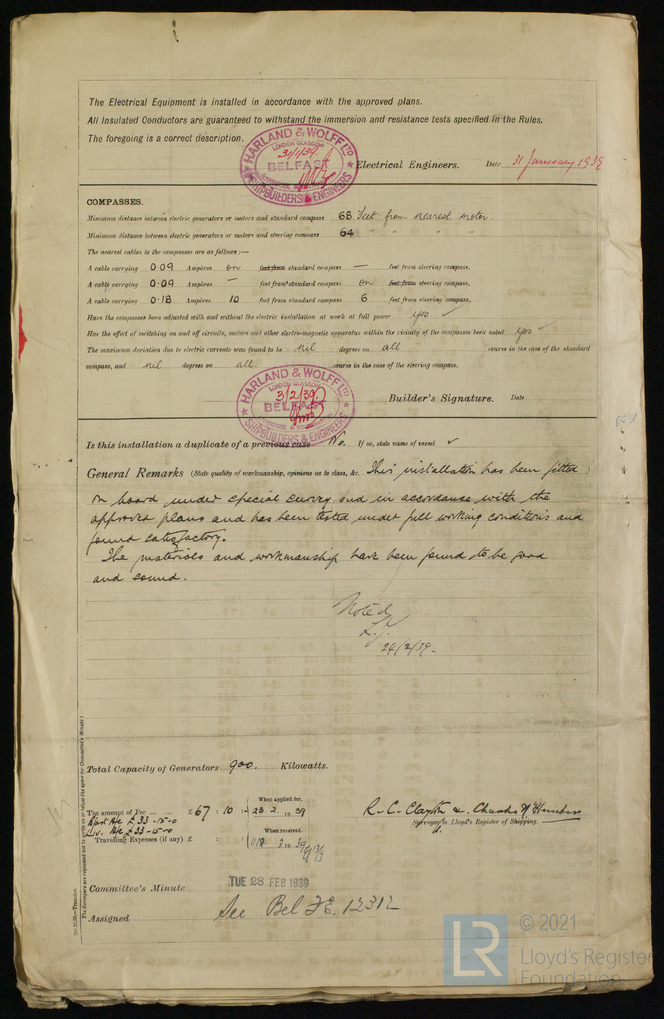 The Electrical Equipment is installed in accordance with the approved plans.
All Insulated Conductors are guaranteed to withstand the immersion and resistance tests specified in the Rules.
The foregoing is a correct description.
HARLAND & WOLFF LTD
LONDON GLASGOW
31/1/39
BELFAST
LIVERPOOL & SOUTHAMPTON
SHIPBUILDERS & ENGINEERS
Electrical Engineers. Date 31 January 1939
COMPASSES.
Minimum distance between electric generators or motors and standard compass 68 Feet from nearest motor.
Minimum distance between electric generators or motors and steering compass 64 " " " "
The nearest cables to the compasses are as follows:—
A cable carrying 0.09 Ampères on feet from standard compass — feet from steering compass.
A cable carrying 0.09 Ampères — feet from standard compass on feet from steering compass.
A cable carrying 0.18 Ampères 10 feet from standard compass 6 feet from steering compass.
Have the compasses been adjusted with and without the electric installation at work at full power yes ✓
Has the effect of switching on and off circuits, motors and other electro-magnetic apparatus within the vicinity of the compasses been noted yes ✓
The maximum deviation due to electric currents was found to be nil degrees on all course in the case of the standard
compass, and nil degrees on all course in the case of the steering compass.
HARLAND & WOLFF LTD
LONDON GLASGOW
3/2/39
BELFAST
SHIPBUILDERS & ENGINEERS
Builder's Signature. Date
Is this installation a duplicate of a previous case No. If so, state name of vessel ✓
General Remarks (State quality of workmanship, opinions as to class, &c. This installation has been fitted
on board under special survey and in accordance with the
approved plans and has been tested under full working conditions and
found satisfactory.
The materials and workmanship have been found to be good
and sound.
Noted
24/2/39.
Total Capacity of Generators 900. Kilowatts.
The amount of Fee ... ... £ 67 : 10 : When applied for, 23.2.1939
£33-15-0
£33-15-0
Travelling Expenses (if any) £ : : When received,
R. C. Clayton &
Surveyor to Lloyd's Register of Shipping.
Committee's Minute TUE 28 FEB 1939
Assigned See Bel F.E. 12312
2m.11.36.—Transfer.
The Surveyors are requested not to write on or below the space for Committee's Minute.)
LR
© 2021
Lloyd's Register
Foundation